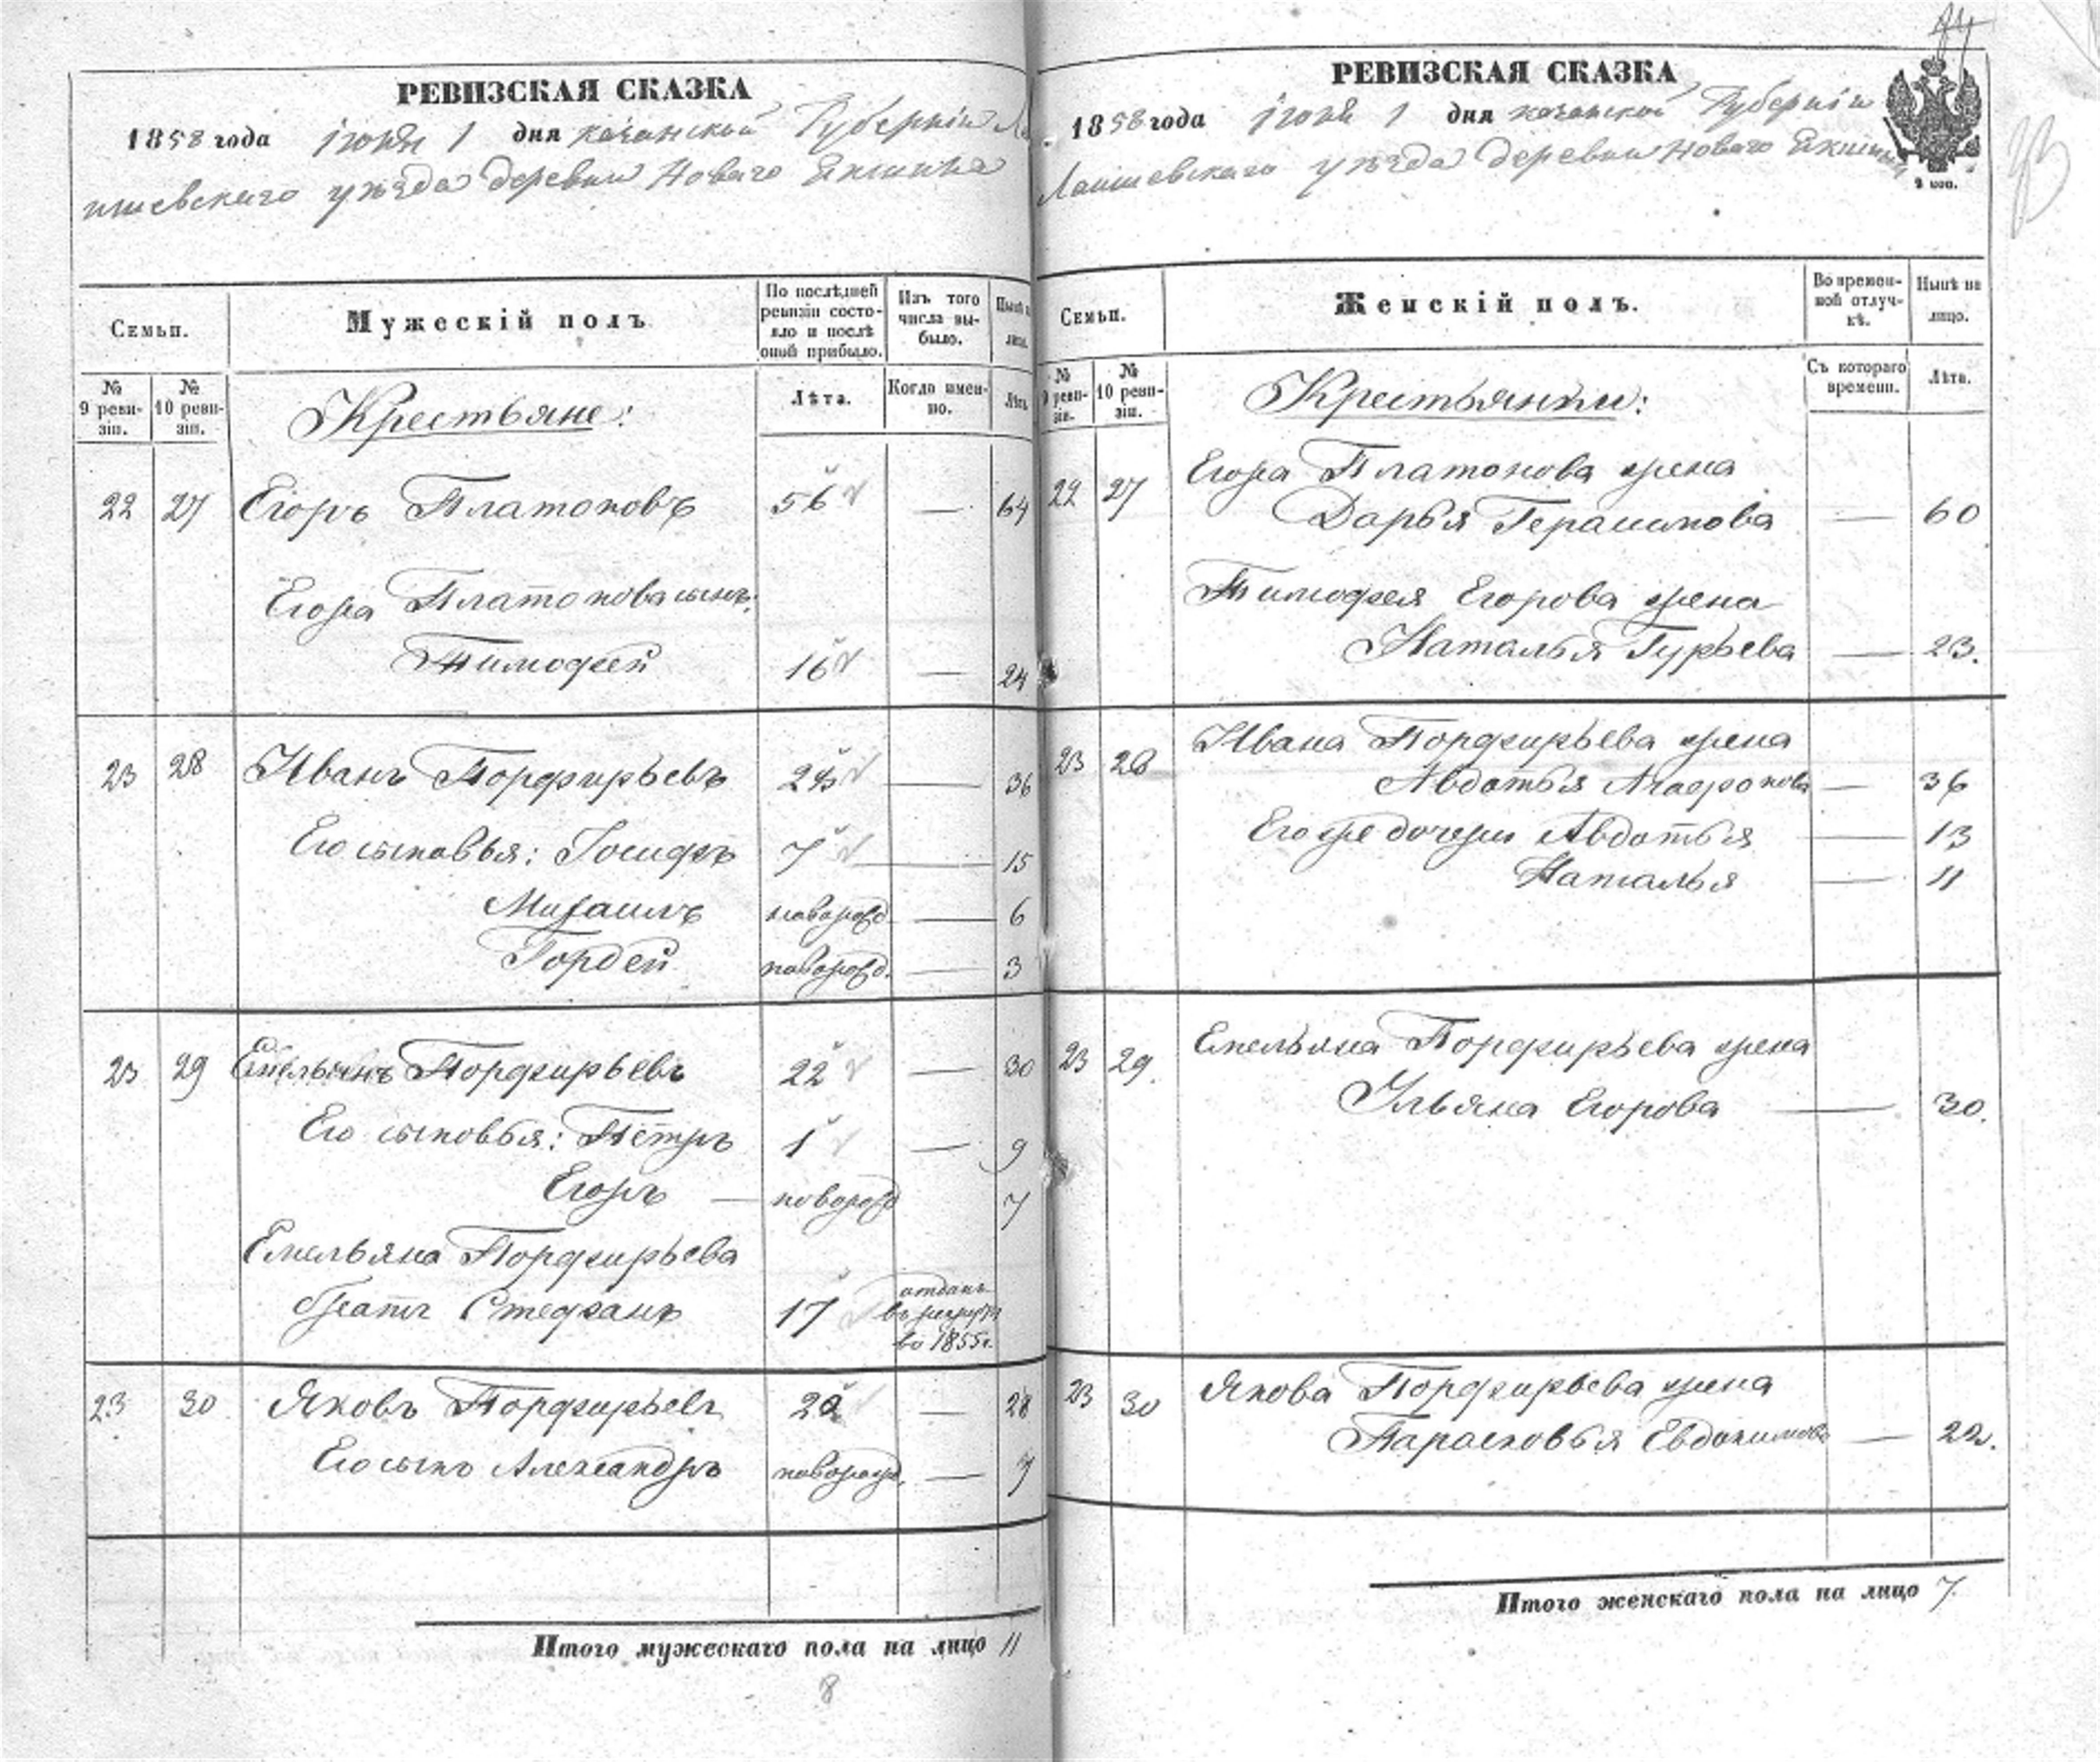 РЕВИЗСКАЯ СКАЗКА
1858 года іюня 1 дня казанской Губерніи Ла
ишевскаго уѣзда деревни Новаго Екшика
Семьи.
Мужескій полъ
По послѣдней ревизіи состояло и послѣ оной прибыло.
Изъ того числа выбыло.
Нынѣ на лицо.
№ 9 ревизіи.
№ 10 ревизіи.
Крестьяне:
Лѣта.
Когда именно.
Лѣта.
22 27 Егоръ Платоновъ 56 — 64
Егора Платонова сынъ:
Тимофей 16 — 24
23 28 Иванъ Порфирьевъ 28 — 36
Его сыновья: Іосифъ 7 — 15
Михаилъ новорожд — 6
Гордей новорожд. — 3
23 29 Емельянъ Порфирьевъ 22 — 30
Его сыновья: Петръ 1 — 9
Егоръ — новорожд 7
Емельяна Порфирьева
братъ Стефанъ 17 отданъ
въ рекруты
во 1855 г.
23 30 Яковъ Порфирьевъ 20 — 28
Его сынъ Александръ новорожд. — 7
Итого мужескаго пола на лицо 11
8
РЕВИЗСКАЯ СКАЗКА
1858 года іюня 1 дня казанской Губерніи
Лаишевскаго уѣзда деревни Новаго Екшика
Семьи.
Женскій полъ.
Во временной отлучкѣ.
Нынѣ на лицо.
№ 9 ревизіи.
№ 10 ревизіи.
Крестьянки:
Съ котораго времени.
Лѣта.
22 27 Егора Платонова жена
Дарья Герасимова — 60
Тимофея Егорова жена
Наталья Гурьева — 23.
23 28 Ивана Порфирьева жена
Авдотья Агафонова — 36
Его же дочери Авдотья — 13
Наталья — 11
23 29. Емельяна Порфирьева жена
Ульяна Егорова — 30.
23 30 Якова Порфирьева жена
Парасковья Евдокимова — 22.
Итого женскаго пола на лицо 7.